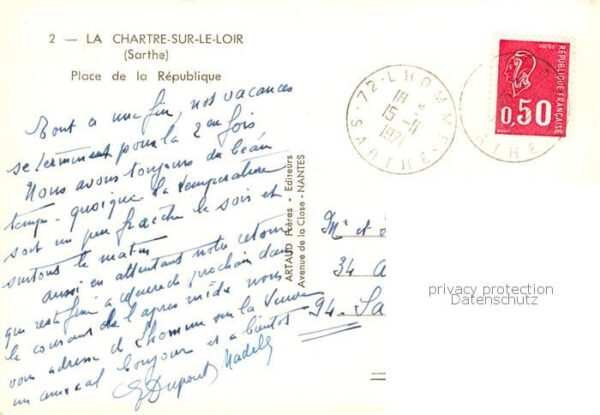 2 — LA CHARTRE-SUR-LE-LOIR
(Sarthe)
Place de la République
Tout a une fin, nos vacances
se terminent pour la 2em fois
Nous avons toujours du beau
temps - quoique la température
soit un peu fraîche le soir et
surtout le matin
Aussi en attendant notre retour
qui reste fixé a prochain dans
le courant de l'après midi nous
vous adresse de Lhomme sur la
un amical bonjour et a bientôt
Dupont Madel
ARTAUD Frères - Editeurs
Avenue de la Close - NANTES
72 - LHOMME
18 H
15 - 11
1971
SARTHE
RÉPUBLIQUE FRANÇAISE
0,50
Mr et
34 A
94 - Sa
privacy protection
Datenschutz